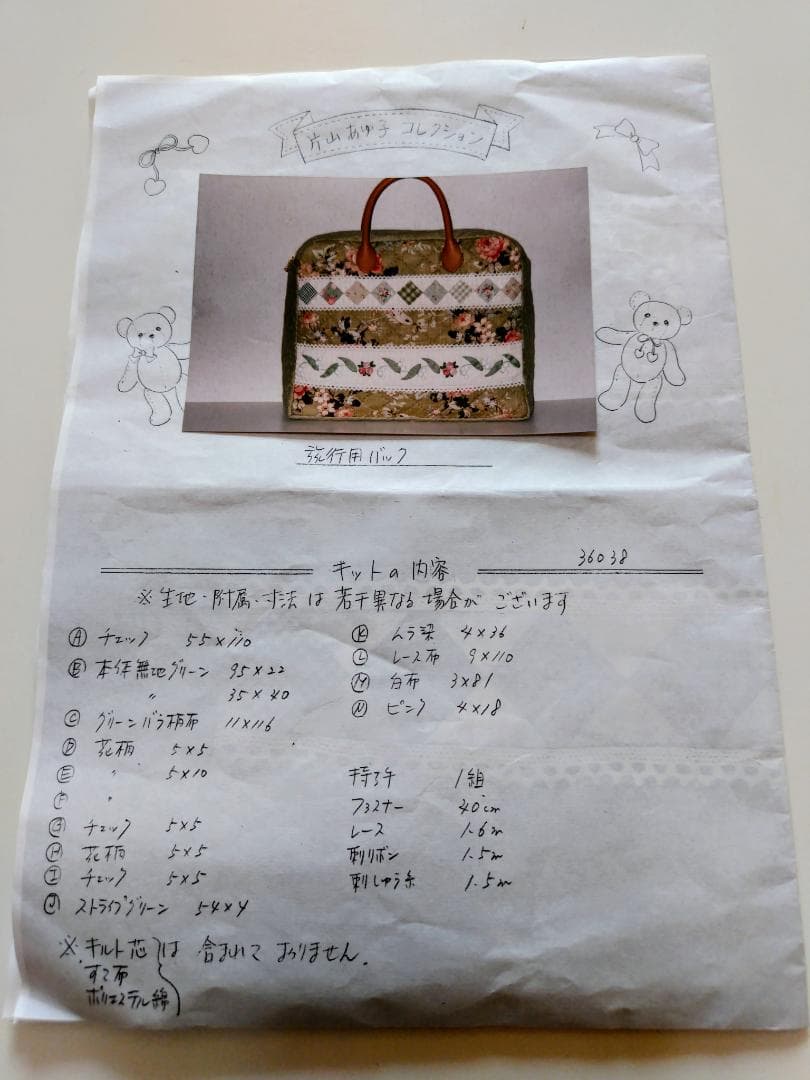 片山あゆ子 コレクション
旅行用バック
36038
キットの内容
※生地・附属・寸法は若干異なる場合がございます
Ⓐ チェック 55×110
Ⓑ 本体無地グリーン 95×22
〃 35×40
Ⓒ グリーンバラ柄布 11×116
Ⓓ 花柄 5×5
Ⓔ 〃 5×10
Ⓕ 〃
Ⓖ チェック 5×5
Ⓗ 花柄 5×5
Ⓘ チェック 5×5
Ⓙ ストライプグリーン 54×4
Ⓚ ムラ染 4×36
Ⓛ レース布 9×110
Ⓜ 白布 3×81
Ⓝ ピンク 4×18
持ち手 1組
ファスナー 40cm
レース 1.6m
刺リボン 1.5m
刺しゅう糸 1.5m
※キルト芯
すて布
ポリエステル綿
は含まれておりません.